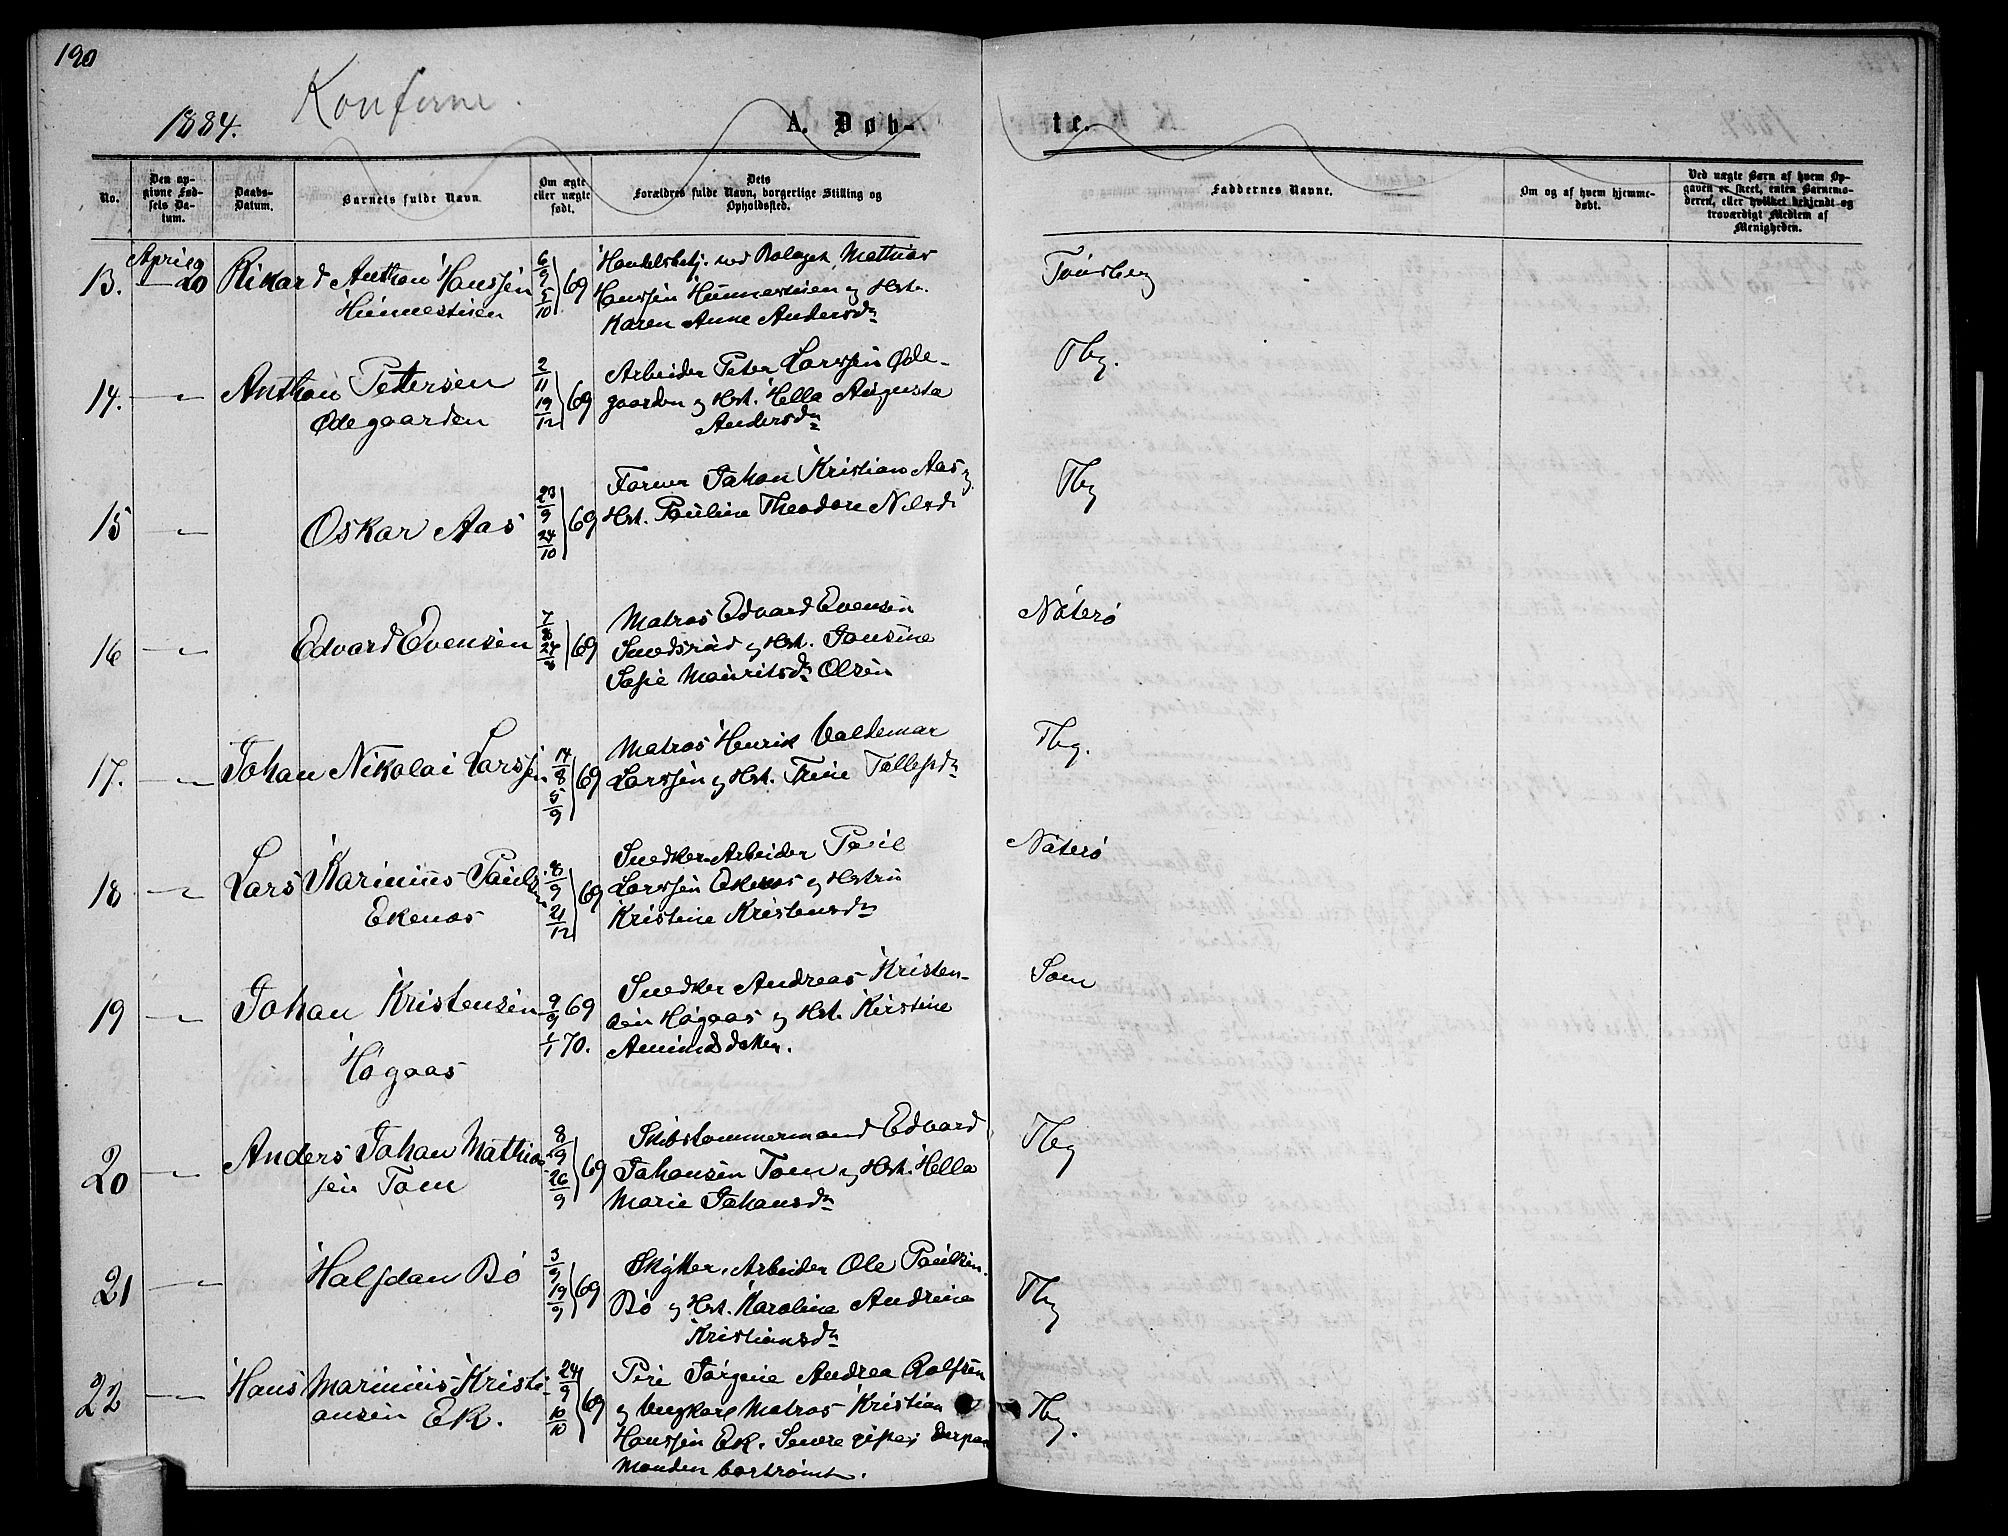 190
Konferne.
1884.
A. Døb-
te.
No.
Den opgivne Fødsels Datum.
Daabs-Datum.
Barnets fulde Navn.
Om ægte eller uægte født.
Dets Forældres fulde Navn, borgerlige Stilling og Opholdssted.
Faddernes Navne.
Om og af hvem hjemmedøbt.
Ved uægte Børn af hvem Opgaven er skeet, enten Barnemoderen, eller hvilket bekjendt og troværdigt Medlem af Menigheden.
13. April 20 Rikard Anthon Hanssen 6/9 5/10 69 Handelsbetj. ved Bolaget Mathias Tønsberg
Hunnestuen Hanssen Hunnestuen og Hst.
Karen Anne Andersdr
14. Anthon Pettersen 2/11 19/12 69 Arbeider Peter Larssen Øde- Tbg.
Ødegaarden gaarden og Hst. Hella Augusta
Andersdr
15 Oskar Aas 23/9 24/10 69 Former Johan Kristian Aas og Tbg
Hst. Pauline Theodore Nilsdr
16 Edvard Evensen 7/8 69 Matros Edvard Evensen Nøterø
Smedsrød og Hst. Jonsine
Sofie Mauritsdr Olsen
17. Johan Nikolai Larssen 14/8 5/9 69 Matros Henrik Valdemar Tbg.
Larssen og Hst. Trine Tollefsdr
18 Lars Karinius Paulsen 8/9 21/12 69 Snedker Arbeider Paul Nøterø
Ekenes Larssen Ekenes og Hstru
Kristine Kristensdr
19 Johan Kristensen 9/9 69 Snedker Andreas Kristen- Sem
1/1 70. sen Høgaas og Hst. Kirstine
Høgaas Amundsdatter.
20 Anders Johan Mathias- 8/9 26/9 69 Skibstømmermand Edvard Tbg
sen Tom Johansen Tom og Hst. Hella
Marie Johansdr
21 Halfdan Bø 3/9 19/9 69 Arbeider Ole Paulsen Tbg
Bø og Hst. Karoline Andrine
Kristiansdr
22 Hans Marinius Kristi- 24/9 10/10 69 Pige Jørgine Andrea Rolfsen Tbg.
ansen Ek. og Ungkarl Matros Kristian
Hanssen Ek. Senere gifter derpaa
Manden bortrømt.